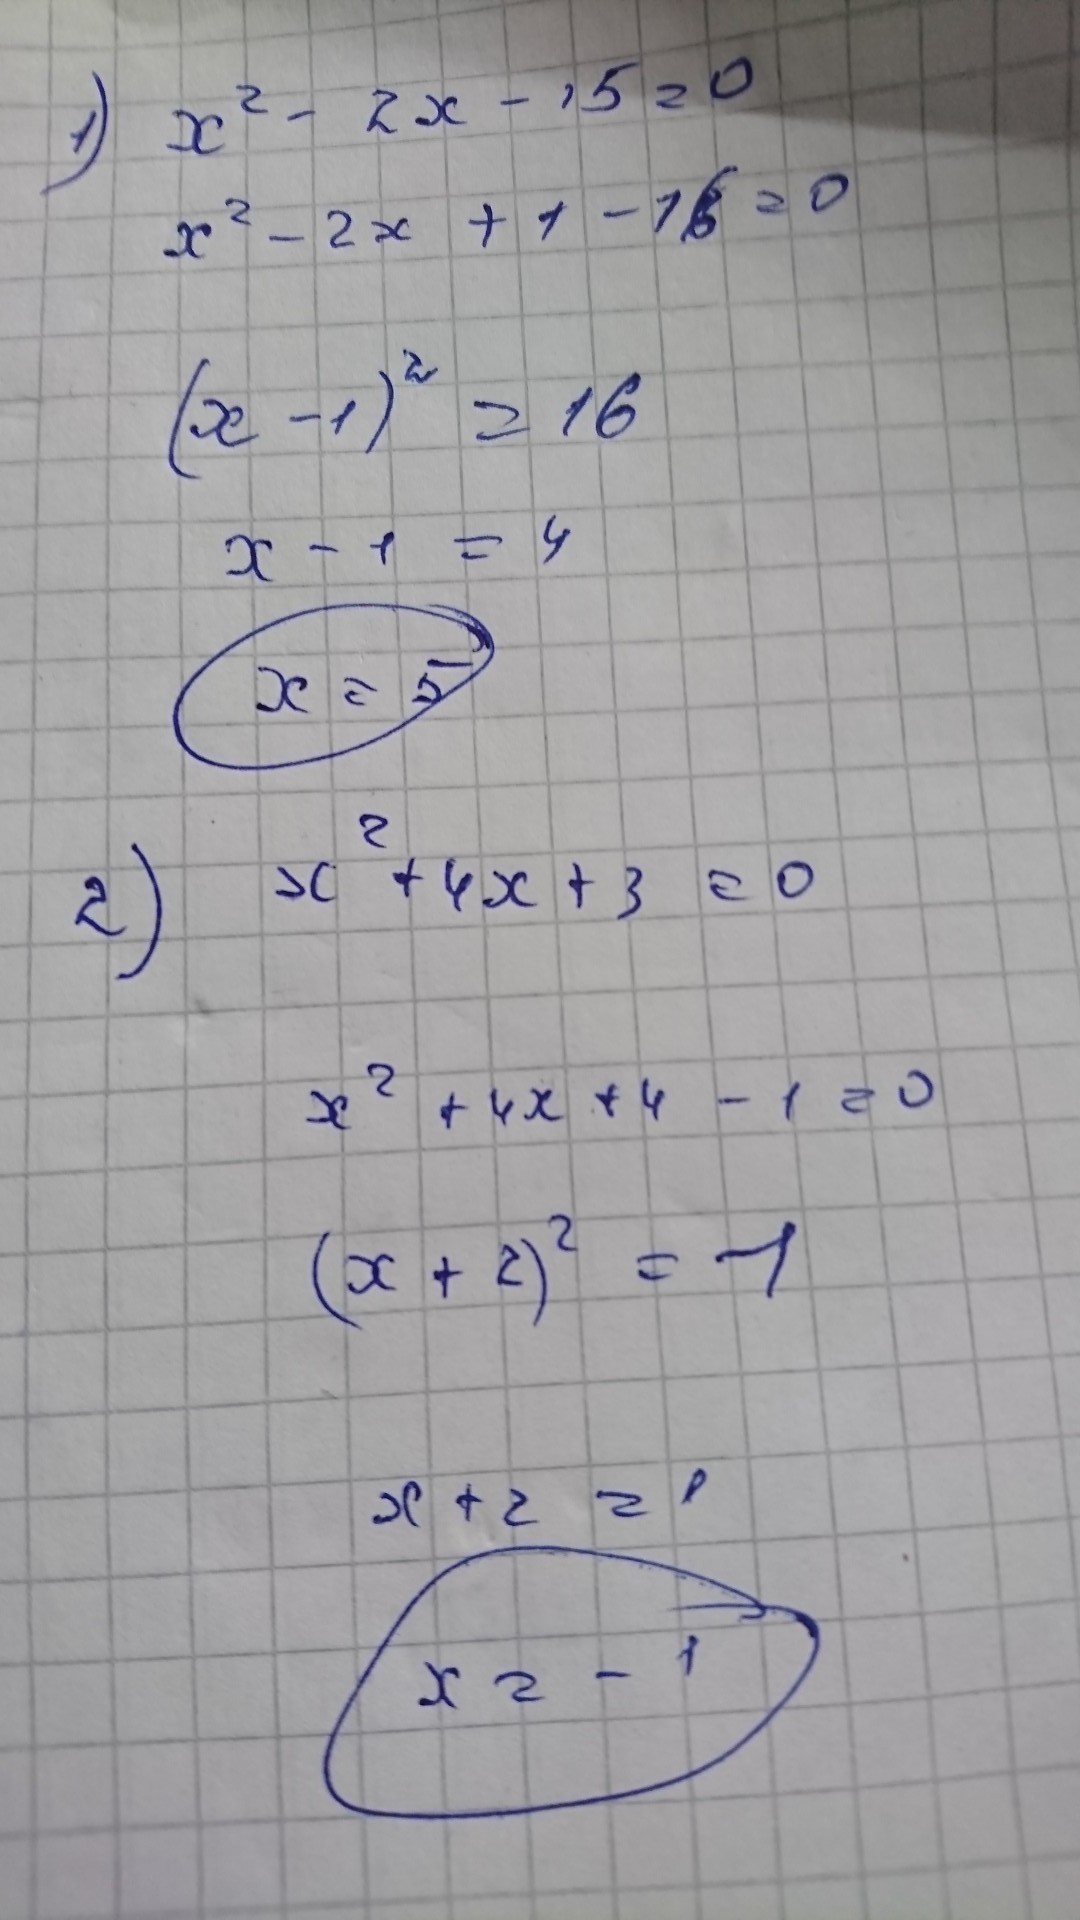 1) x² - 2x - 15 = 0
x² - 2x + 1 - 16 = 0
(x - 1)² = 16
x - 1 = 4
x = 5
2) x² + 4x + 3 = 0
x² + 4x + 4 - 1 = 0
(x + 2)² = -1
x + 2 = 1
x = -1